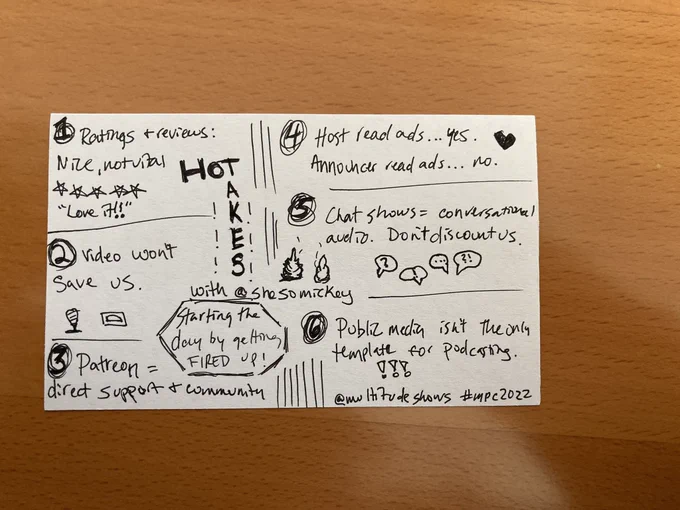 1 Ratings + reviews:
Nice, not vital
"Love it!!"
2 Video won't
save us.
3 Patreon =
direct support + community
HOT
TAKES
! ! ! ! ! !
with @shesomickey
Starting the
day by getting
FIRED UP!
4 Host read ads... yes.
Announcer read ads... no.
5 Chat shows = conversational
audio. Don't discount us.
? ... ?!
6 Public media isn't the only
template for podcasting.
!!!
@multitudeshows #mpc2022